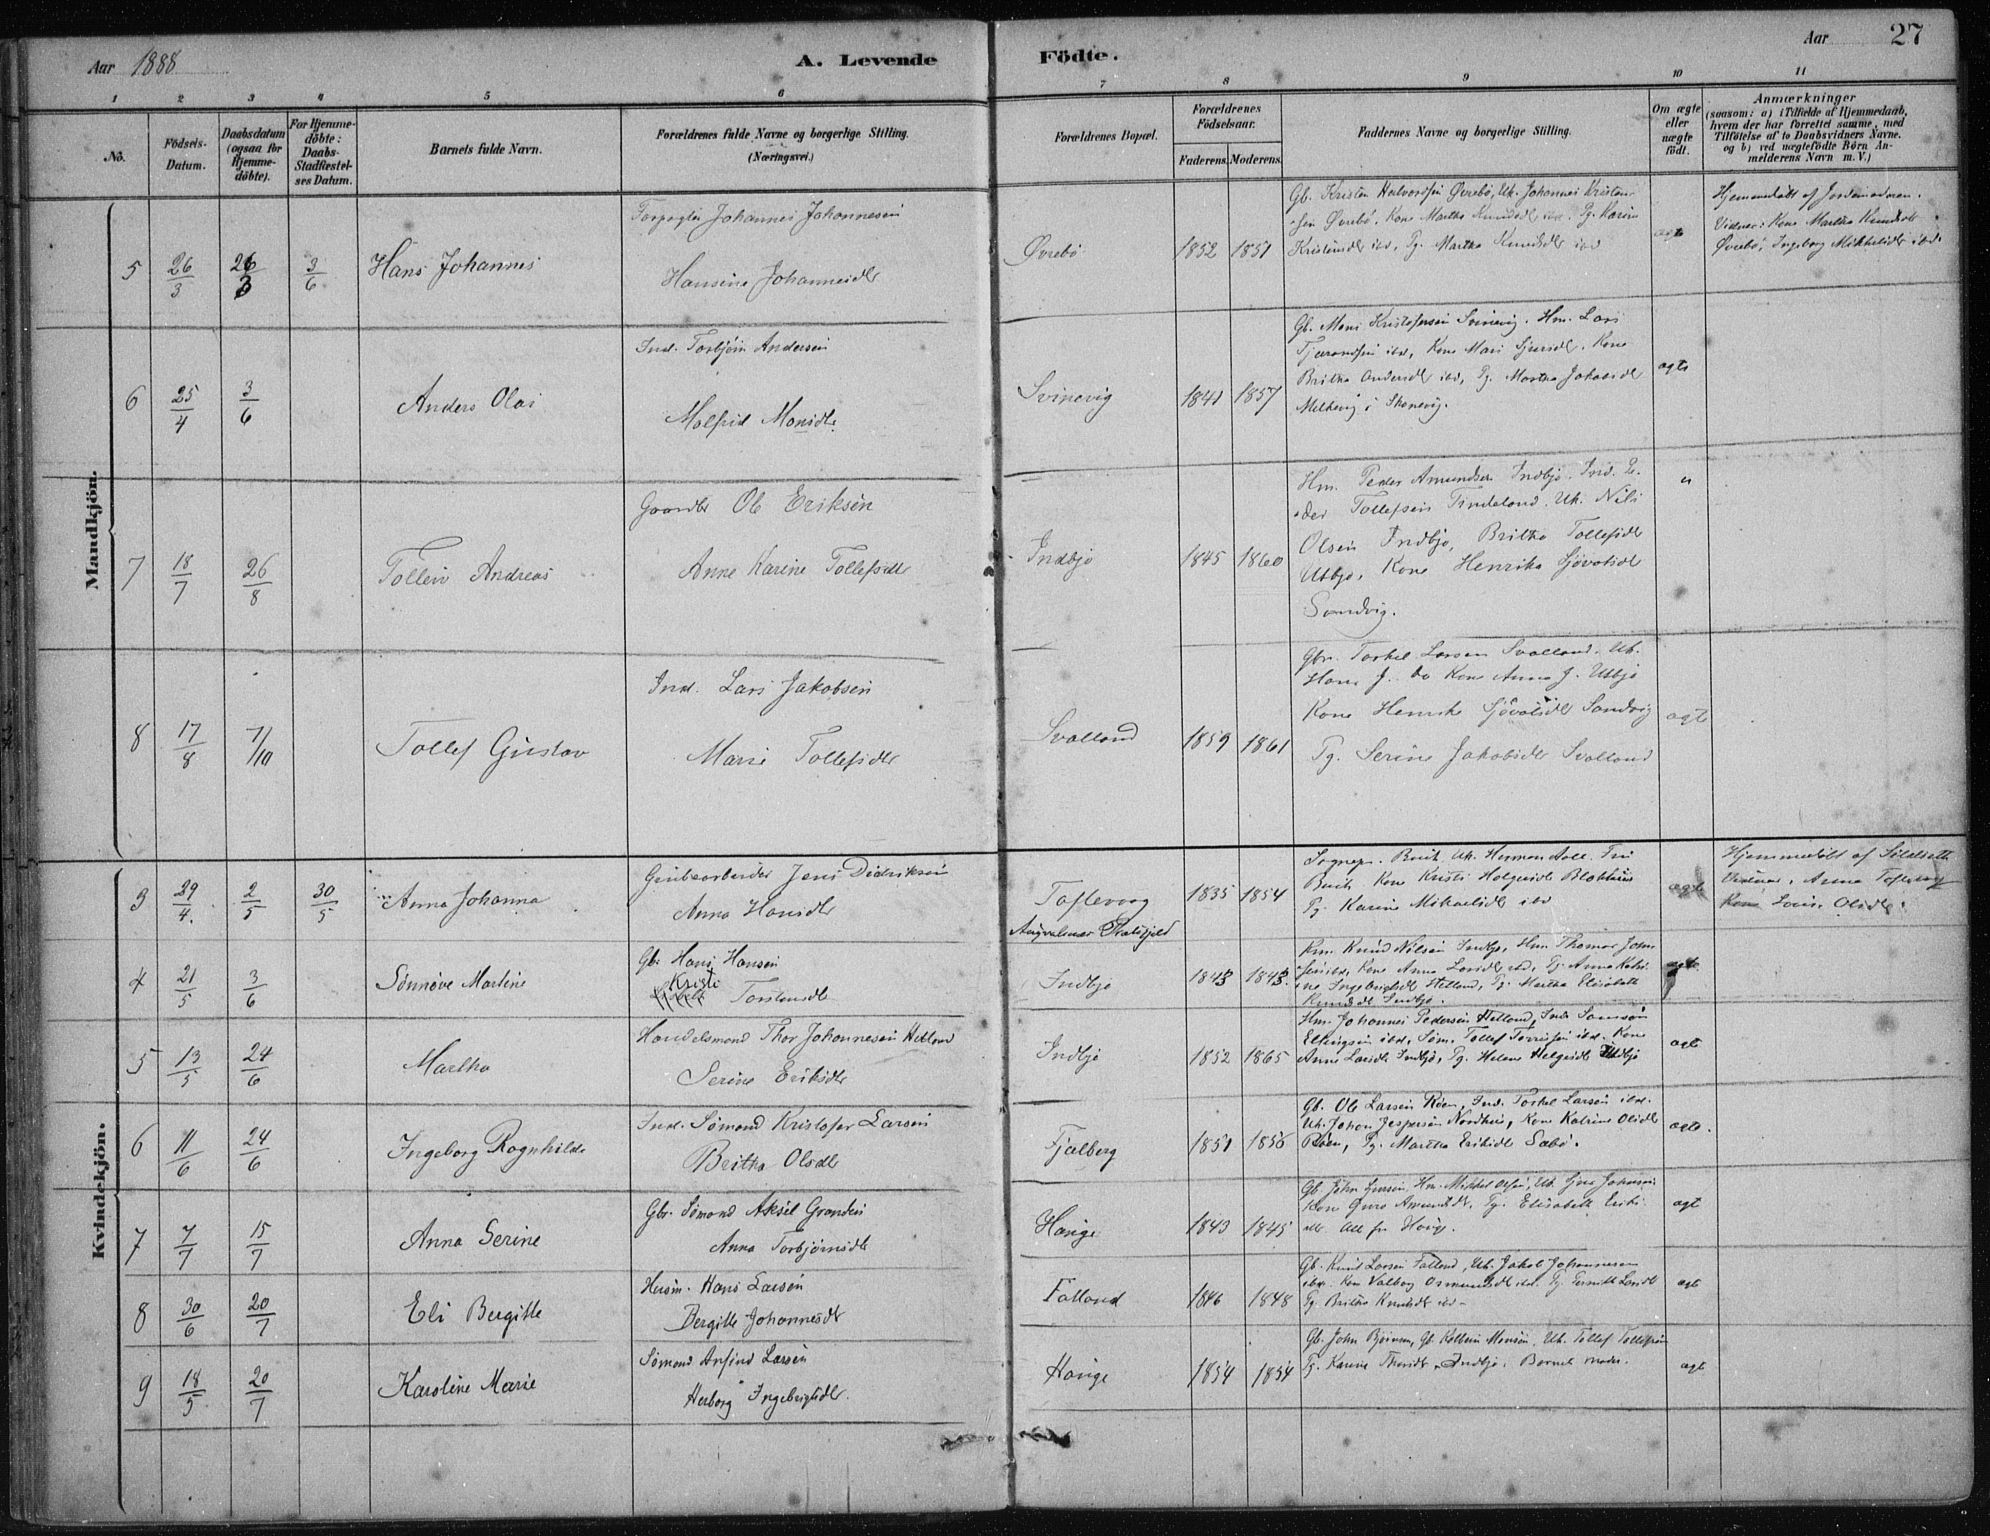 Aar 1888
A. Levende
Födte.
Aar
27
1 2 3 4 5 6 7 8 9 10 11
No.
Födsels-
Datum.
Daabsdatum
(ogsaa for
Hjemme-
döbte).
For Hjemme-
döbte:
Daabs-
Stadfæstel-
ses Datum.
Barnets fulde Navn.
Forældrenes fulde Navne og borgerlige Stilling.
(Næringsvei.)
Forældrenes Bopæl.
Forældrenes
Födselsaar.
Faderens. Moderens.
Faddernes Navne og borgerlige Stilling.
Om ægte
eller
uægte
födt.
Anmærkninger
(saasom: a) i Tilfælde af Hjemmedaab,
hvem der har forrettet samme, med
Tilföielse af to Daabsvidners Navne.
og b) ved uægtefödte Börn An-
melderens Navn m. V.)
Mandkjön.
5 26/3 26/3 3/6 Hans Johannes
Johannes Johannesen
Hansine Johannesdtr
Øvrebø 1852 1851
Gb. Kristen Halvordsen Øvrebø, Uk. Johannes Kristen-
sen Øvrebø. Kone Martha Knudsdtr ibd. Pg. Karen
Kristensdtr ibd, Pg. Martha Knudsdtr ibd
ægte
Hjemmedøbt af Jordemoderen.
Vidner: Kone Martha Knudsdtr
Øvrebø, Ingeborg Mikkelsdtr ibd.
6 25/4 3/6 Anders Olai
Ind. Torbjörn Andersen
Molfrid Monsdtr.
Svinevig 1841 1857
Gb. Mons Kristofersen Svinevig. Hm. Lars
ibd, Kone Mari Sjursdtr. Kone
Britha Andersdtr ibd, Pg. Martha Jakobsdtr
Melkevig i Skonevig.
ægte
7 18/7 26/8 Tollein Andreas
Gaardbr Ole Eriksen
Anne Karine Tollefsdtr
Indbjo 1845 1860
Hm. Peder Amundsen Indbjo. Ind. Pe-
der Tollefsen Tindeland. Uk. Nils
Olsen Indbjo, Britha Tollefsdtr
Utbjo, Kone Henrika Sjövatsdtr
Sandvig.
"
8 17/8 7/10 Tollef Gustav
Ind. Lars Jakobsen
Marie Tollefsdtr
Svalland 1859 1861
Gbr. Torkel Larsen Svalland. Uk.
Hans J. do Kone Anna J. Utbjo
Kone Henrike Sjövatsdtr Sandvig
Pg. Serine Jakobsdtr Svalland
ægte
Kvindekjön.
3 29/4. 2/5 30/5 Anna Johanna
Grubearbeider Jens Didriksen
Anna Hansdtr
Toflevaag
1835 1854
Sognepr. Buch, Uk. Herman Aall. Fru
Buch Kone Kristi Holgersdtr Blokhus
Pg. Karine Mikaelsdtr ibd
ægte
Hjemmedöbt af
Vidner. Anna Toflevaag
Kone Lovise Olsdtr.
4 21/5 3/6 Sönnöve Martine
Gbr. Hans Hansen
Kristi
Torstensdtr
Indbjo 1843 1843.
Km. Knud Nilsen Indbjo, Hm. Thomas John-
sen ibd, Kone Anna Larsdtr ibd, Pg. Anna Katri-
ne Ingebrigtsdtr Hetland, Pg. Martha Elisabeth
Knudsdtr Indbjo.
ægte
5 13/5 24/6 Martha
Handelsmand Thor Johannesen Hetland
Serine Eriksdtr
Indbjo 1852 1865
Hm. Johannes Pedersen Hetland, Ind. Samson
Ellingsen ibd, Søm. Tollef Torrissen ibd. Kone
Anne Larsdtr Indbjo, Pg. Helene Helgesdtr Indbjo
ægt
6 11/6 24/6 Ingeborg Ragnhilde
Ind. Sömand Kristofer Larsen
Britha Olsdtr
Fjælberg 1851 1856
Gb. Ole Larsen Röen, Ind. Torkel Larsen ibd.
Uk. Johan Jespersen Nordhus, Kone Katrine Olsdtr
Röen, Pg. Martha Eriksdtr Sæbö.
ægte.
7 7/7 15/7 Anna Serine
Gbr. Sömand Aksel Gronden
Anna Torbjörnsdtr
Hauge 1843 1845
Gb. John Larsen Hm. Mikkel Olsen, Uk. Sjur Johansen
Kone Guro Amundsdtr, Pg. Elisabeth Eriks-
dtr alle fr Hauge.
ægt
8 30/6 20/7 Eli Bergitte
Husm. Hans Larsen
Bergitte Johannesdtr
Folland 1846 1848
Gb. Knud Larsen Folland, Uk. Jakob Johannesen
ibd. Kone Valborg Osmundsdtr ibd. Pg. Pernille Larsdtr
Pg. Britha Knudsdtr ibd-
ægt
9 18/5 20/7 Karoline Marie
Sömand Anfind Larsen
Herborg Ingebrigtsdtr.
Hauge 1854 1854
Gb. John Uk. Tollef Tollefsen
Pg. Karine Indbjo. Barnets moder.
ægt